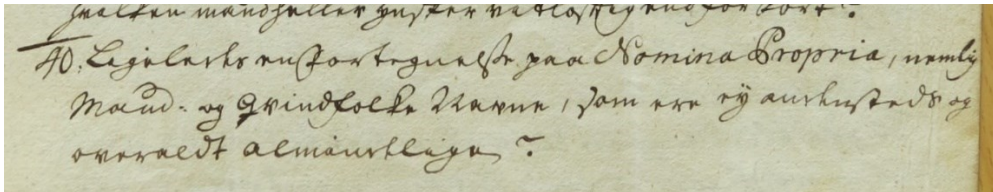 hvilken mand heller
40. Ligeledes en Fortegnelse paa Nomina Propria, nemlig
Mand- og Qvindfolke Navne, som ere ej andensteds og
overaldt almindelige ?